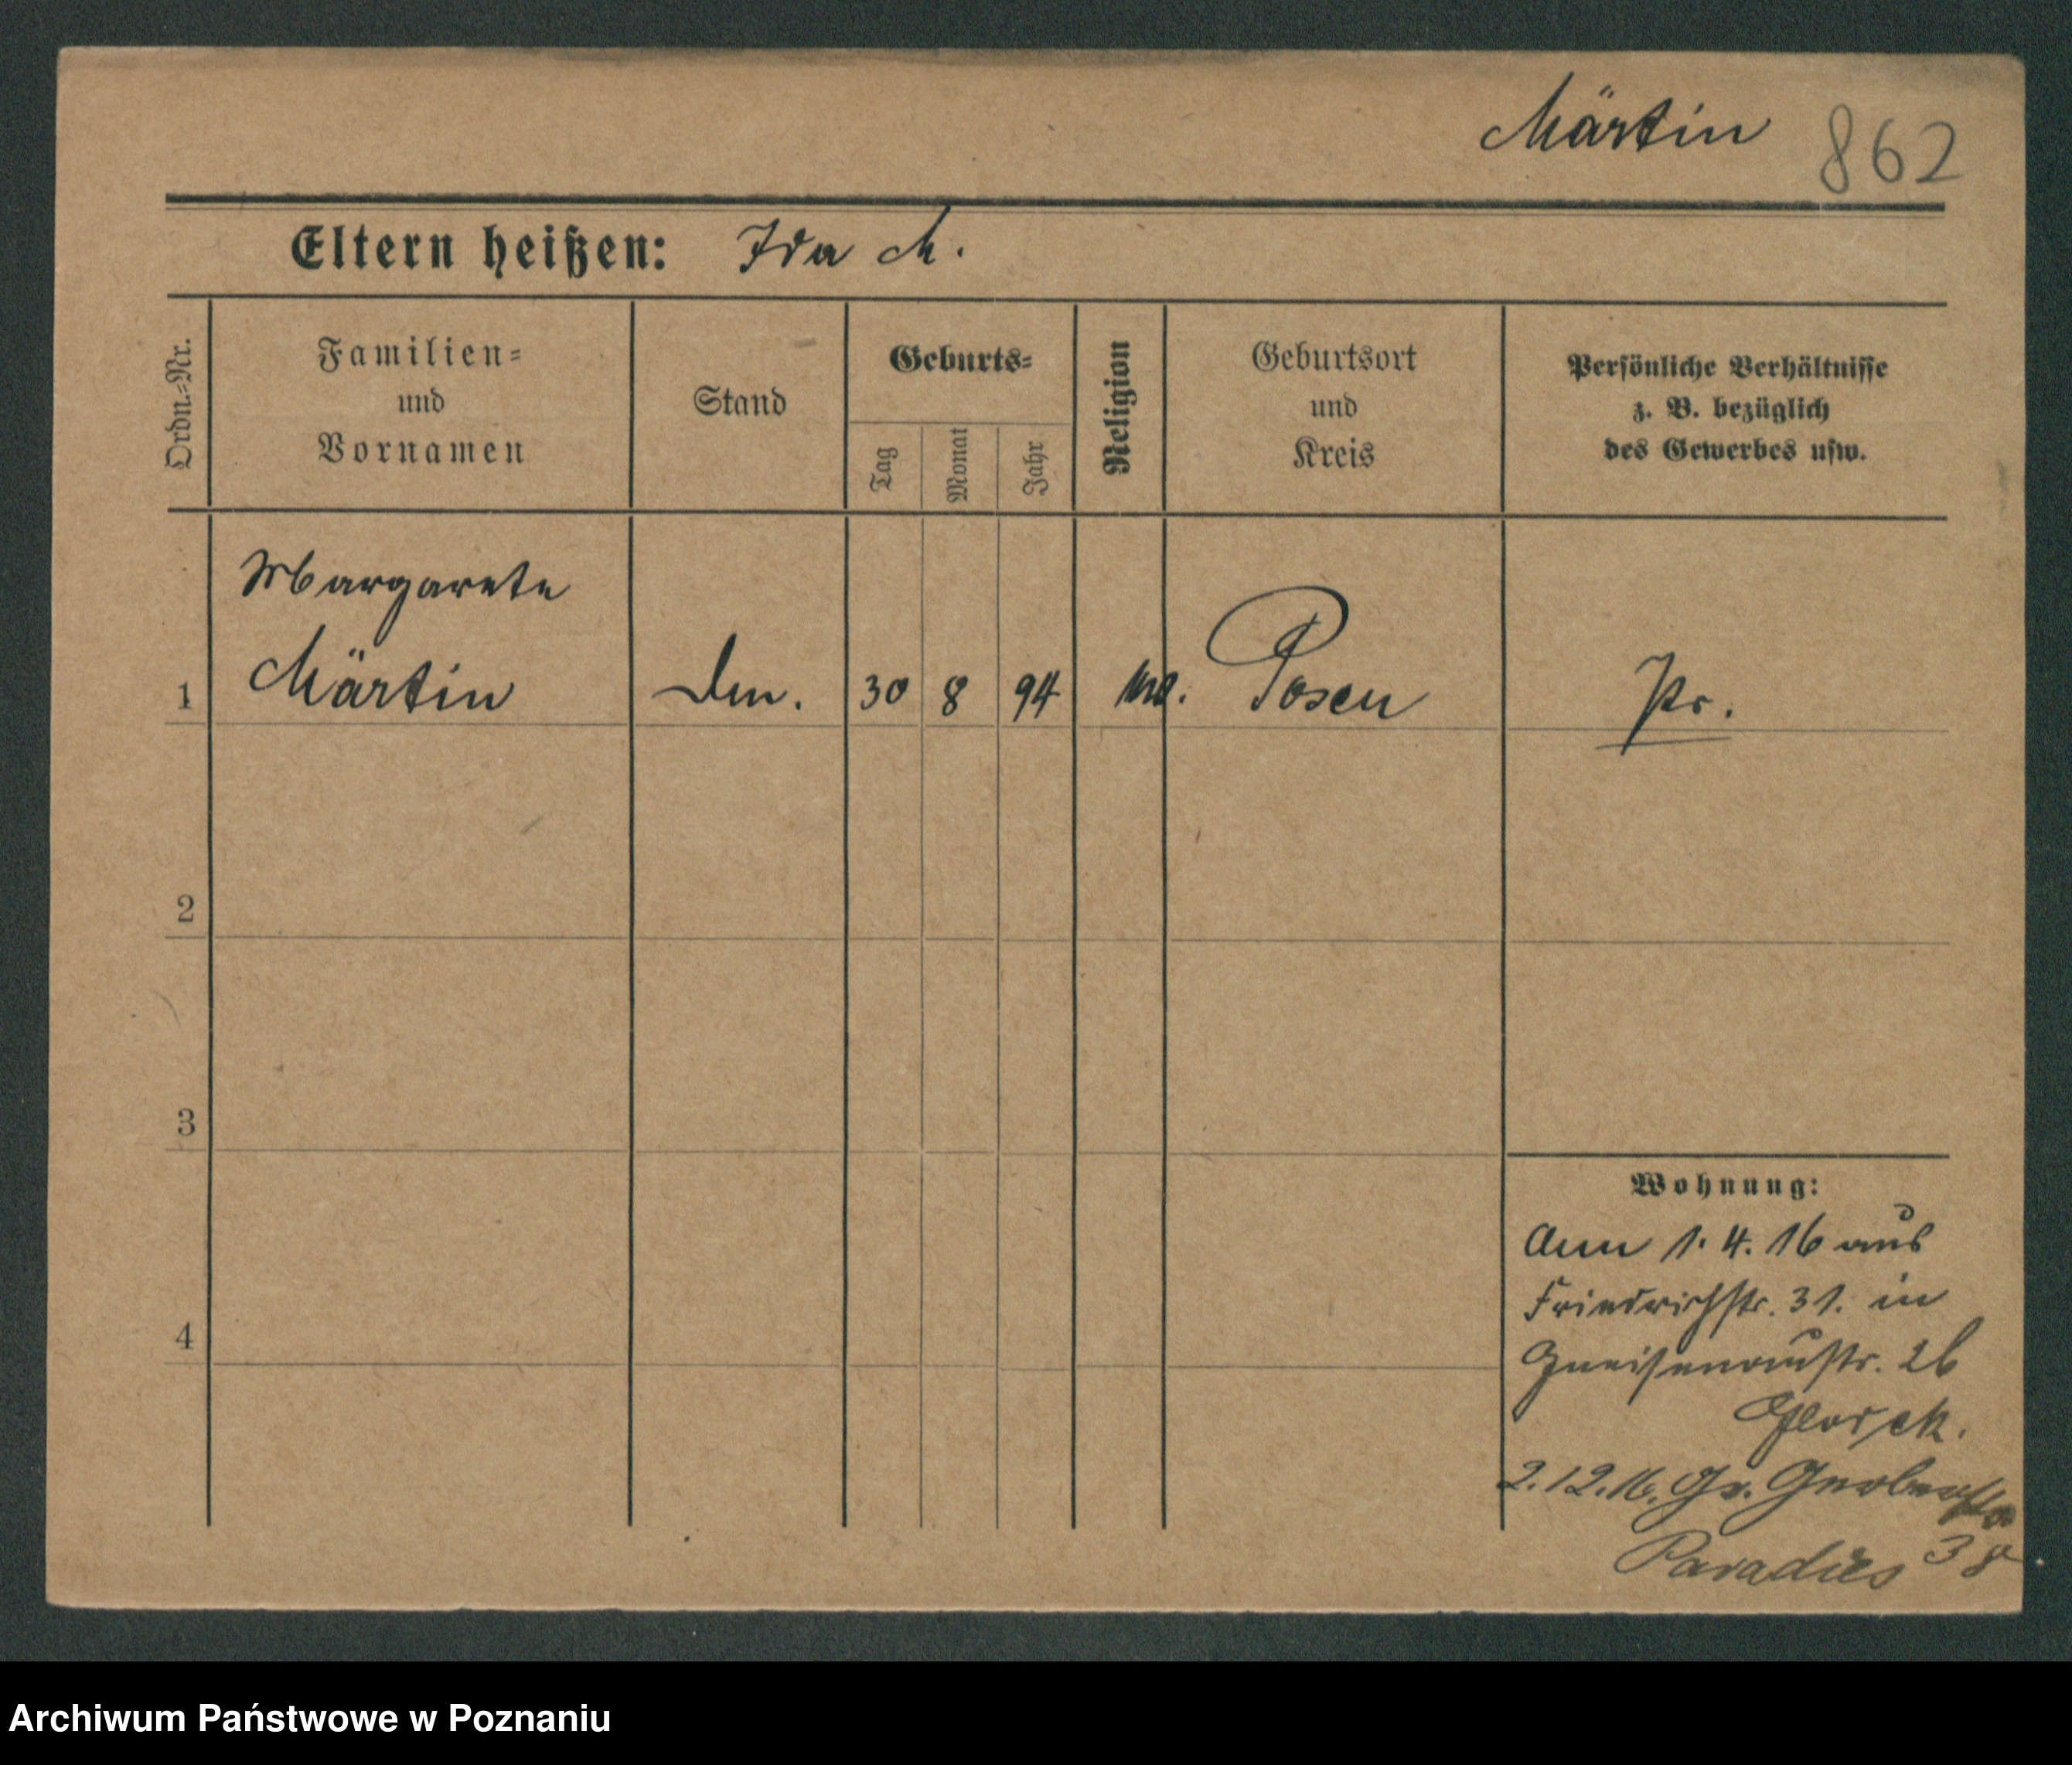 Märtin 862
Eltern heißen: Ida M.
Ordn.-Nr.
Familien-
und
Vornamen
Stand
Geburts-
Tag
Monat
Jahr
Religion
Geburtsort
und
Kreis
Persönliche Verhältnisse
z. B. bezüglich
des Gewerbes usw.
Margarete
1 Märtin 30 8 94 Posen Pr.
2
3
4
Wohnung:
1. 4. 16 aus
Friedrichstr. 31. in
Gneisenaustr. 2b
2.12.16. Gr.
Paradies 38
Archiwum Państwowe w Poznaniu